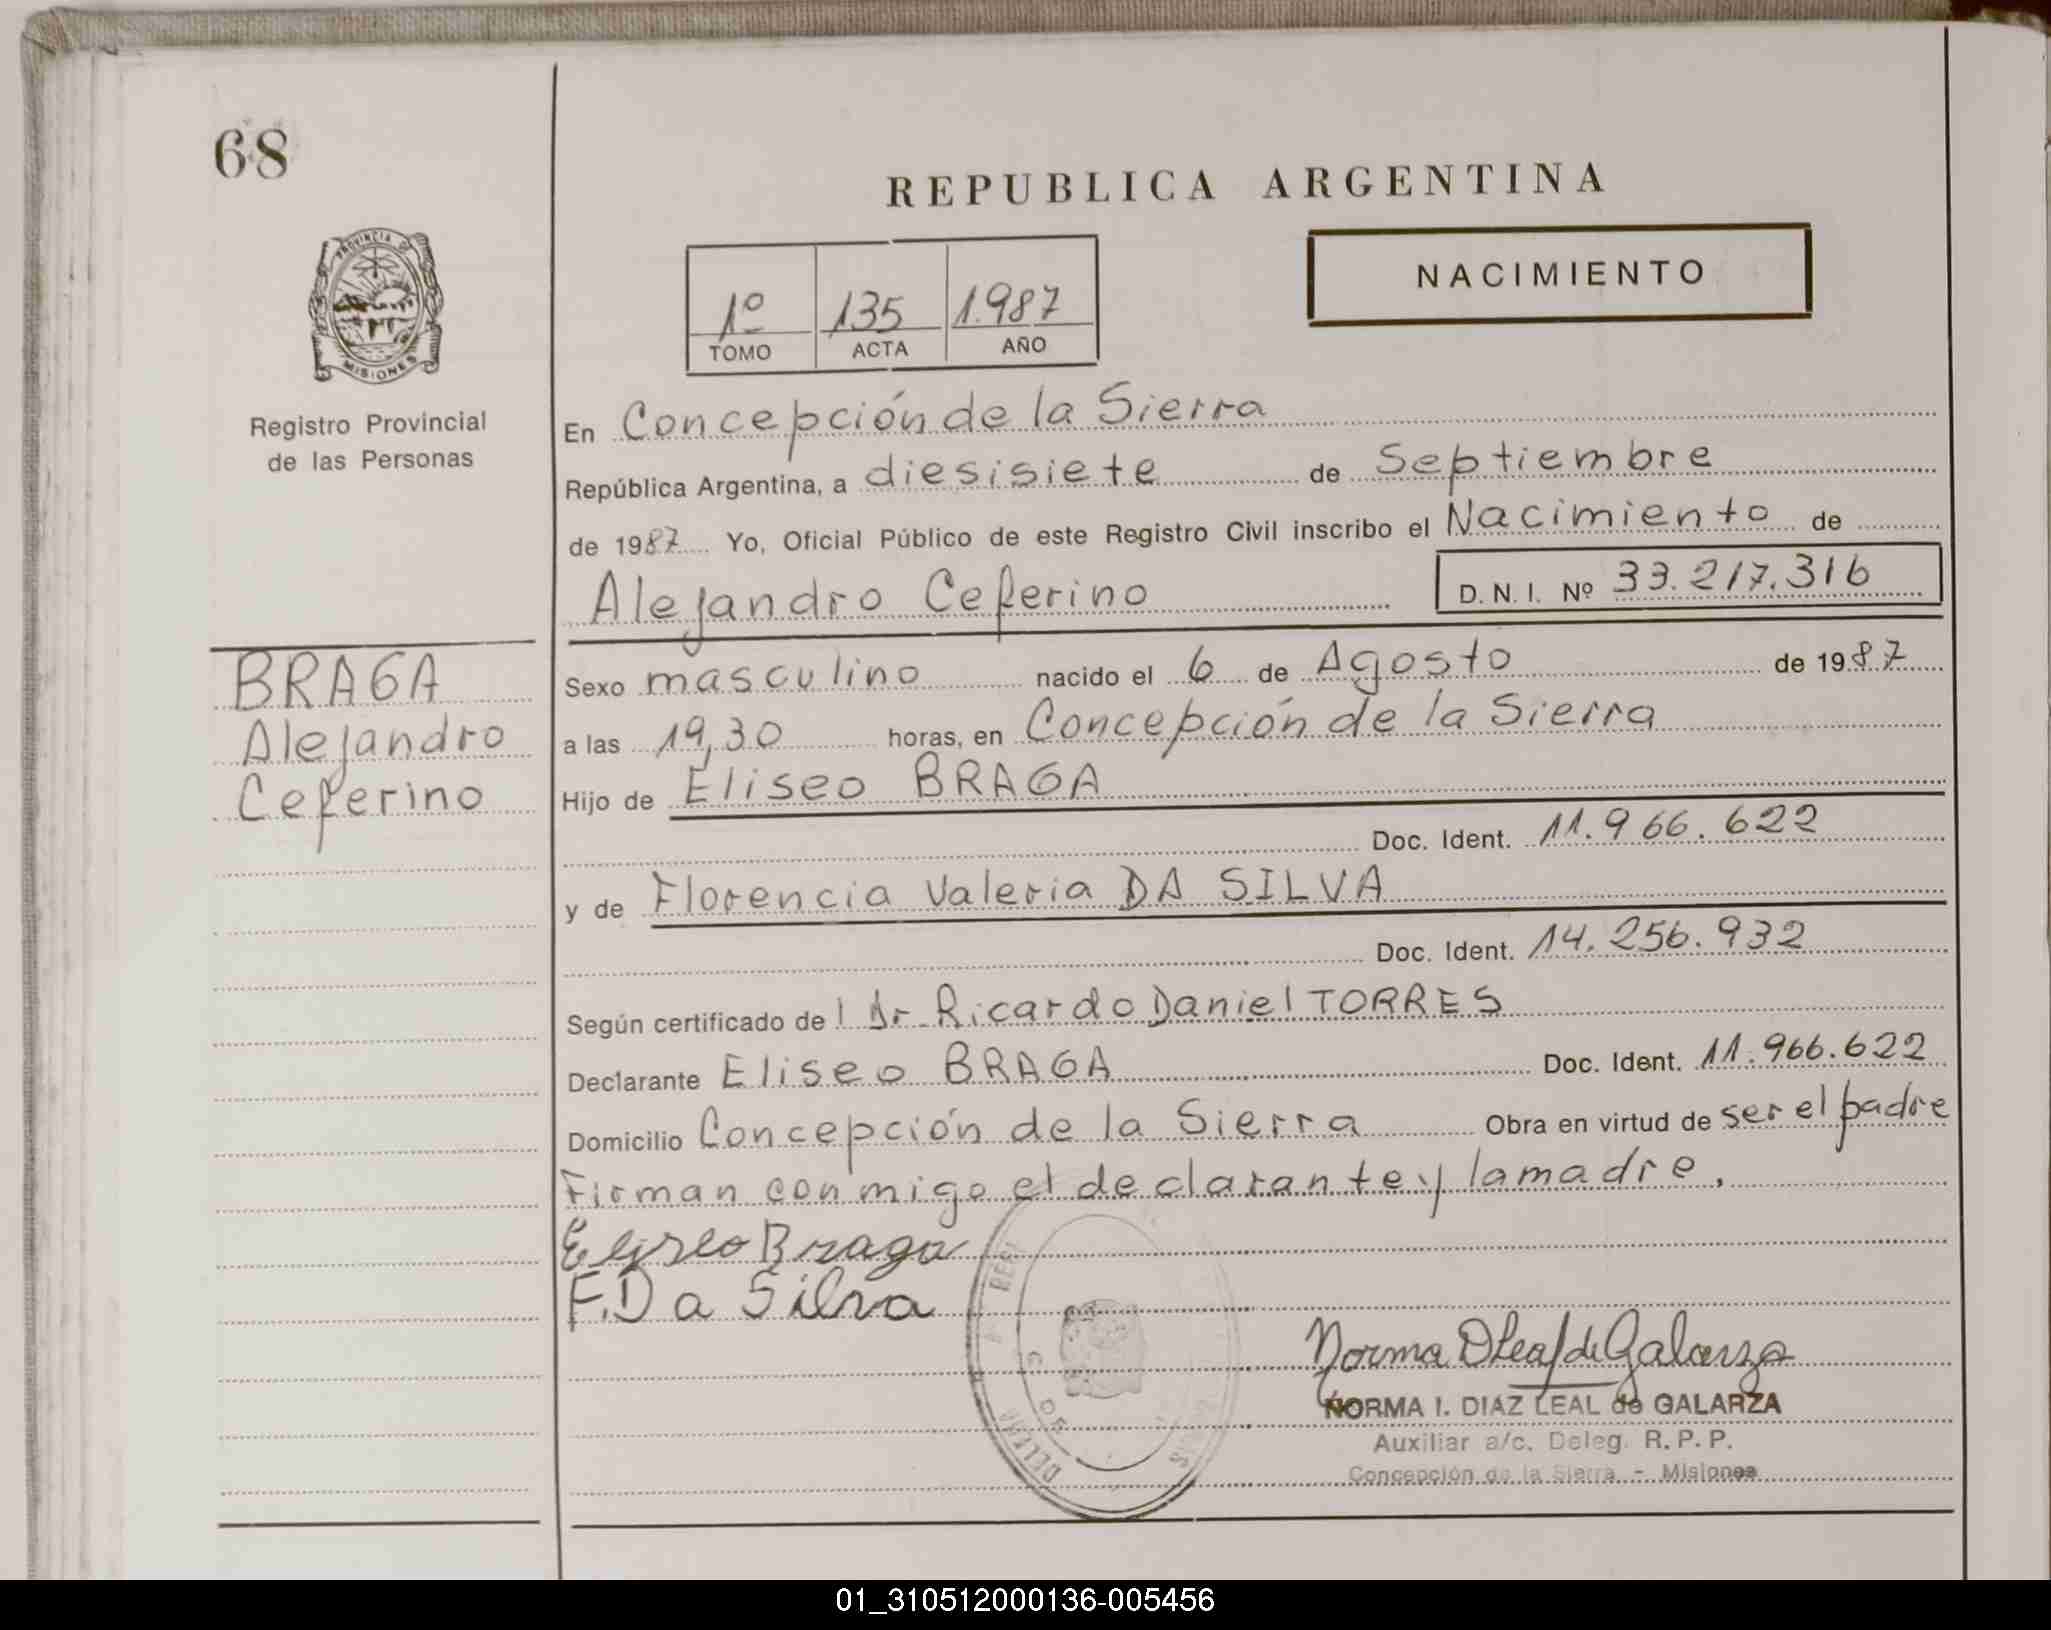 68
REPUBLICA ARGENTINA
NACIMIENTO
1º 135 1.987
TOMO ACTA AÑO
PROVINCIA DE
MISIONES
Registro Provincial
de las Personas
En Concepción de la Sierra
República Argentina, a diesisiete de Septiembre
de 1987 Yo, Oficial Público de este Registro Civil inscribo el Nacimiento de
Alejandro Ceferino D. N. I. Nº 33.217.316
BRAGA
Alejandro
Ceferino
Sexo masculino nacido el 6 de Agosto de 1987
a las 19,30 horas, en Concepción de la Sierra
Hijo de Eliseo BRAGA
Doc. Ident. 11.966.622
y de Florencia Valeria DA SILVA
Doc. Ident. 14.256.932
Según certificado del Dr Ricardo Daniel TORRES
Declarante Eliseo BRAGA Doc. Ident. 11.966.622
Domicilio Concepción de la Sierra Obra en virtud de ser el padre
Firman conmigo el declarante y la madre.
Eliseo Braga
F. Da Silva
Norma DLeal de Galarza
NORMA I. DIAZ LEAL de GALARZA
Auxiliar a/c. Deleg. R. P. P.
Concepción de la Sierra - Misiones
01_310512000136-005456